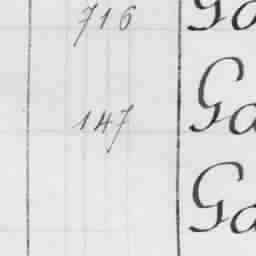 716 Ga
147 Ga
Ga